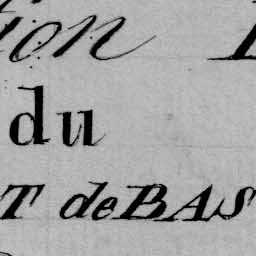 tion
du
T de BAS